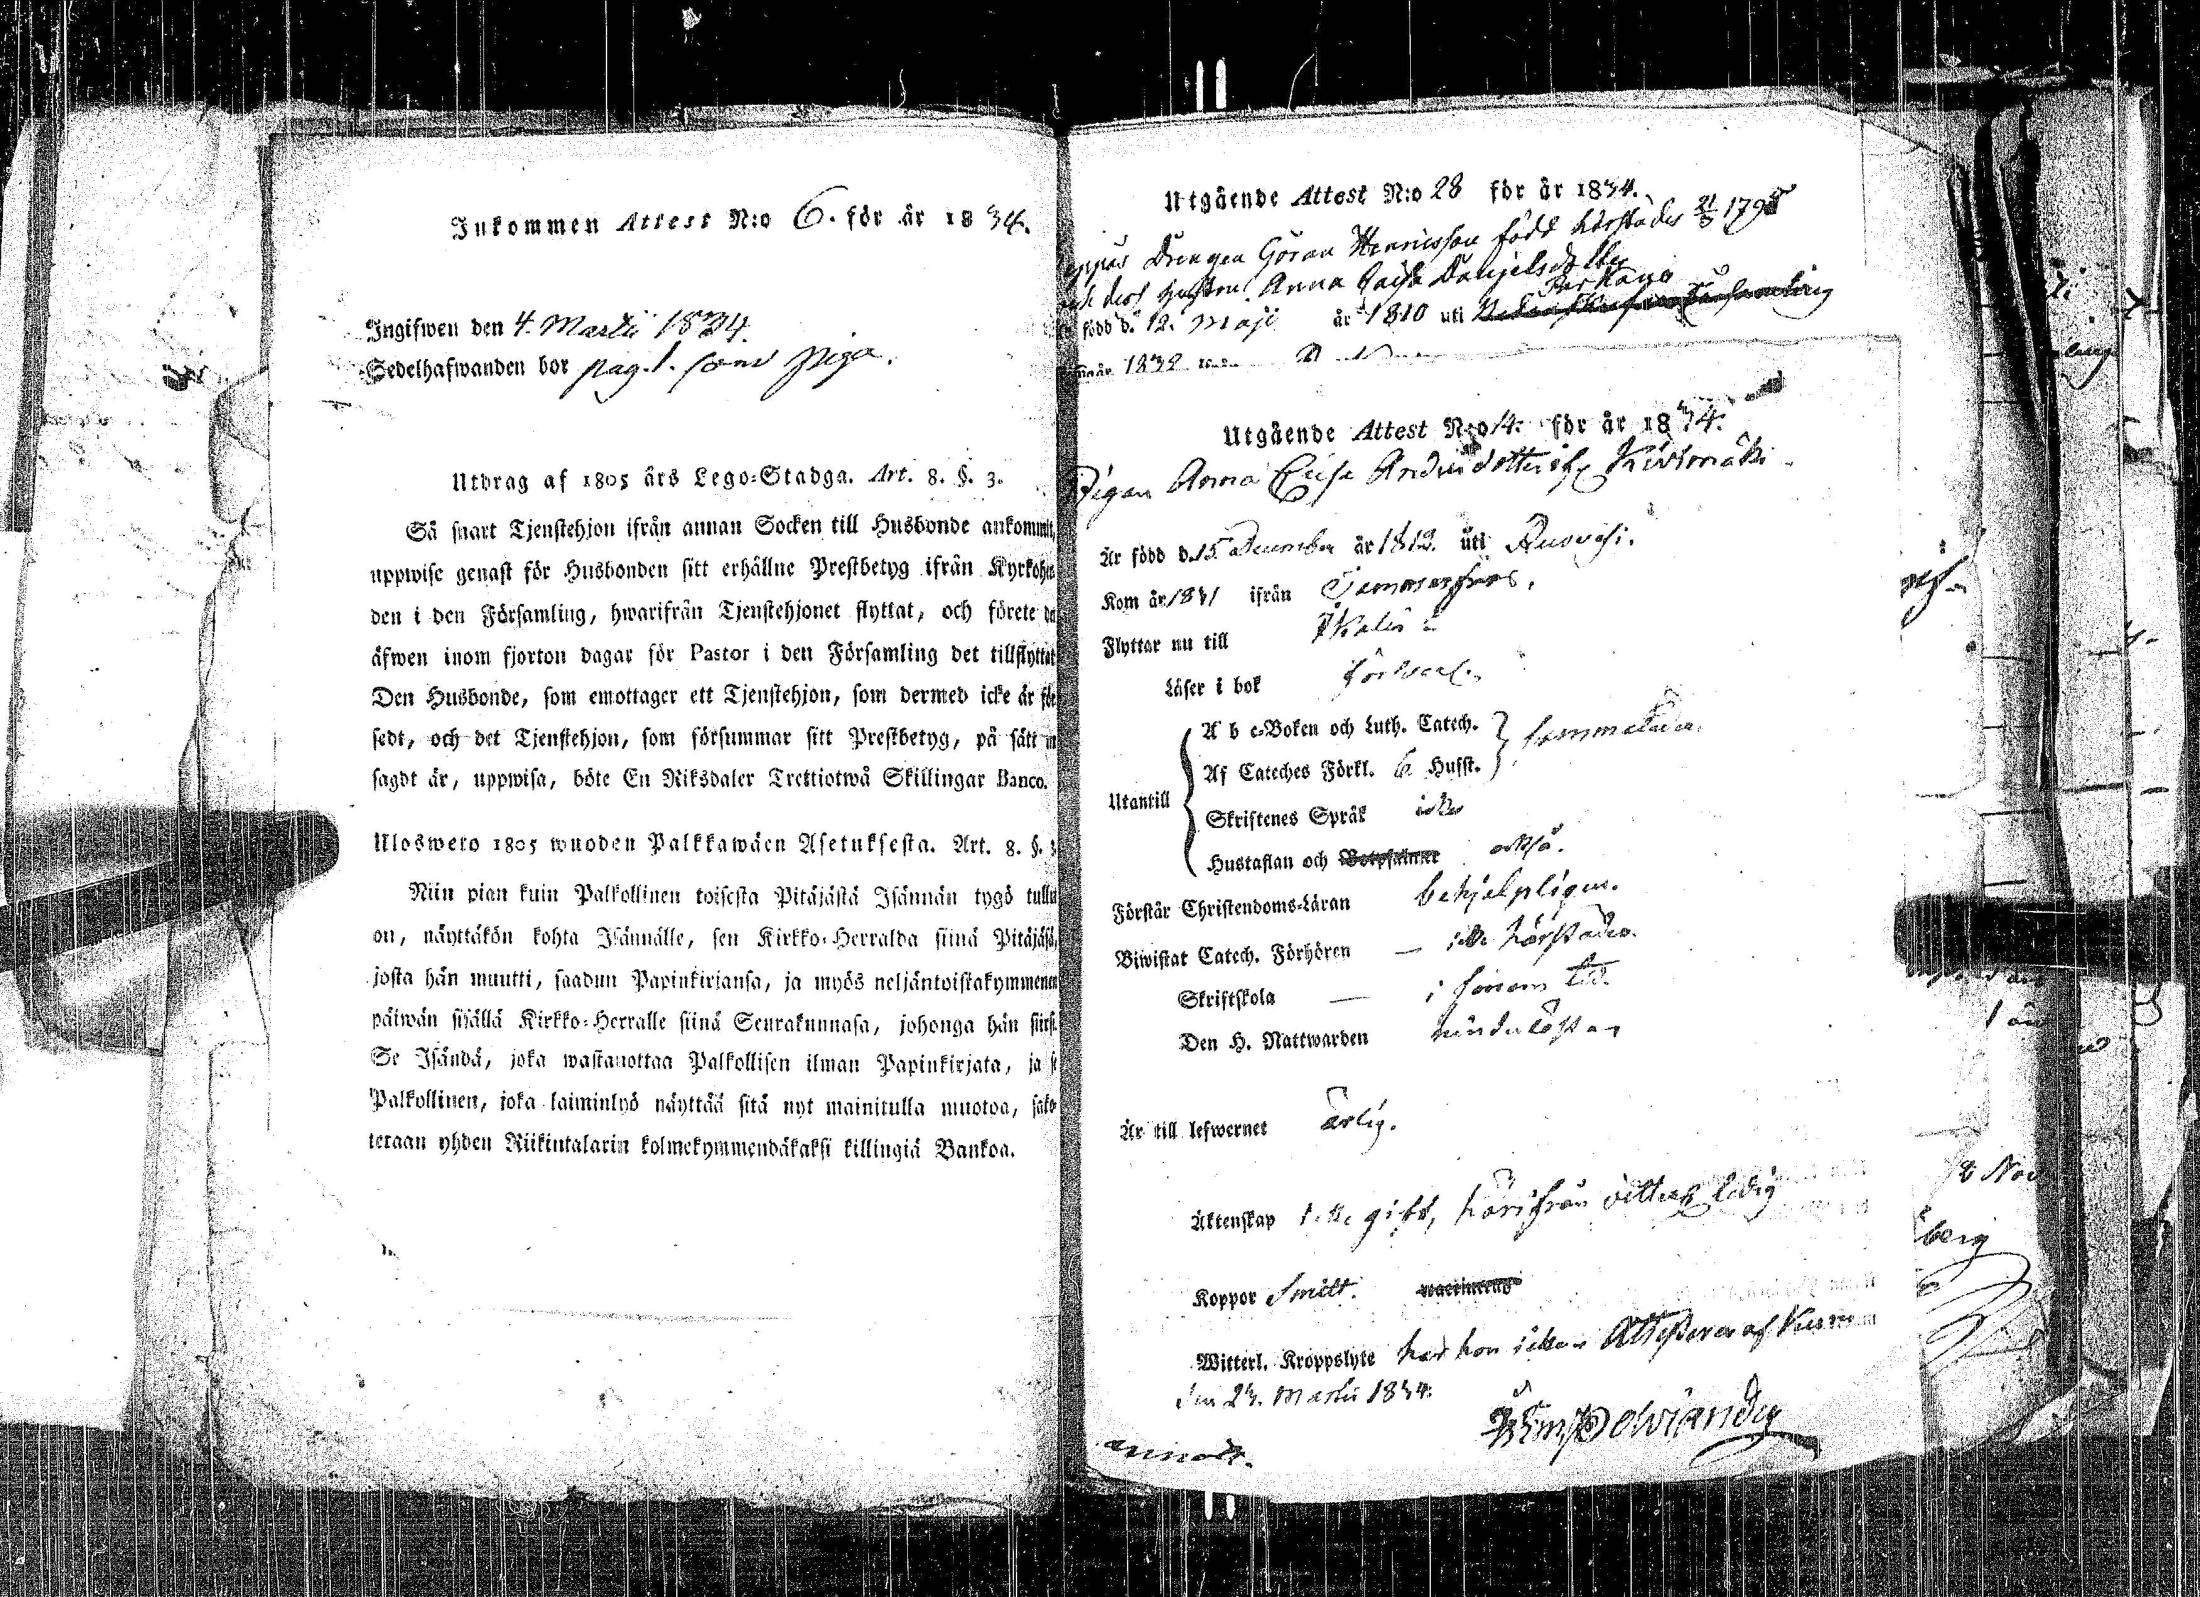 Inkommen Attest N:o 6. för år 1834.
Ingifwen den 4. Martii 1834.
Sedelhafwanden bor pag. 1. som piga.
Utdrag af 1805 års Lego-Stadga. Art. 8. §. 3.
Så snart Tjenstehjon ifrån annan Socken till Husbonde ankommit,
uppwise genast för Husbonden sitt erhållne Prestbetyg ifrån Kyrkoher
den i den Församling, hwarifrån Tjenstehjonet flyttat, och förete de
äfwen inom fjorton dagar för Pastor i den Församling det tillflyttat
Den Husbonde, som emottager ett Tjenstehjon, som dermed icke är för
sedt, och det Tjenstehjon, som försummar sitt Prestbetyg, på sätt
sagdt är, uppwisa, böte En Riksdaler Trettiotwå Skillingar Banco.
Uloswero 1805 wuoden Palkkawäen Asetuksesta. Art. 8. §. 3
Niin pian kuin Palkollinen toisesta Pitäjästä Isännän tygö tullu
on, näyttäkön kohta Isännälle, sen Kirkko-Herralda siinä Pitäjäsä,
josta hän muutti, saadun Papinkirjansa, ja myös neljäntoistakymmenen
päiwän sisällä Kirkko-Herralle siinä Seurakunnasa, johonga hän siirs
Se Isändä, joka wastanottaa Palkollisen ilman Papinkirjata, ja se
Palkollinen, joka laiminlyö näyttää sitä nyt mainitulla muotoa, sako
tetaan yhden Riikintalarin kolmekymmendäkaksi killingiä Bankoa.
Utgående Attest N:o 28 för år 1834.
Drengen Göran Henricsson född härstädes 21/3 179
och dess hustru Anna Caisa Danjelsdotter
Parkano
född d. 12. Maji år 1810 uti
år 1832
Utgående Attest N:o 14. för år 1834.
Pigan Anna Caisa Andersdotter ifr
Är född d. 15 December år 1812. uti Ruovesi.
Kom år 1831 ifrån Tammerfors.
Flyttar nu till Ikalis
Läser i bok försvarl.
Utantill
A b c-Boken och Luth. Catech.
Af Cateches Förkl. 6 Husst. sammaledes.
Skriftenes Språk icke
Hustaflan och Botpsalmer också.
Förstår Christendoms-Läran behjelpligen.
Biwistat Catech. Förhören — icke härstädes.
Skriftskola — i sinom tid.
Den H. Nattwarden
Är till lefwernet ärlig.
Äktenskap icke gift, härifrån ledig
Koppor Smitt. vaccinerad
Witterl. Kroppslyte har hon icke. Attesterar af
den 23. Martii 1834.